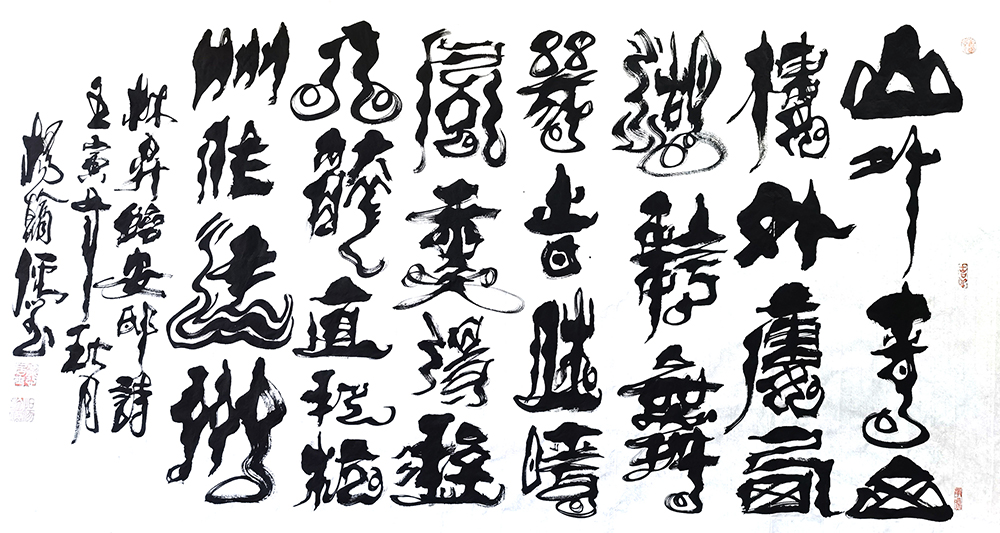 山外青山
樓外樓西
湖歌舞
幾時休暖
風熏得遊
人醉直把杭
州作汴州
林昇臨安邸詩
壬寅年秋月
楊翰儒书